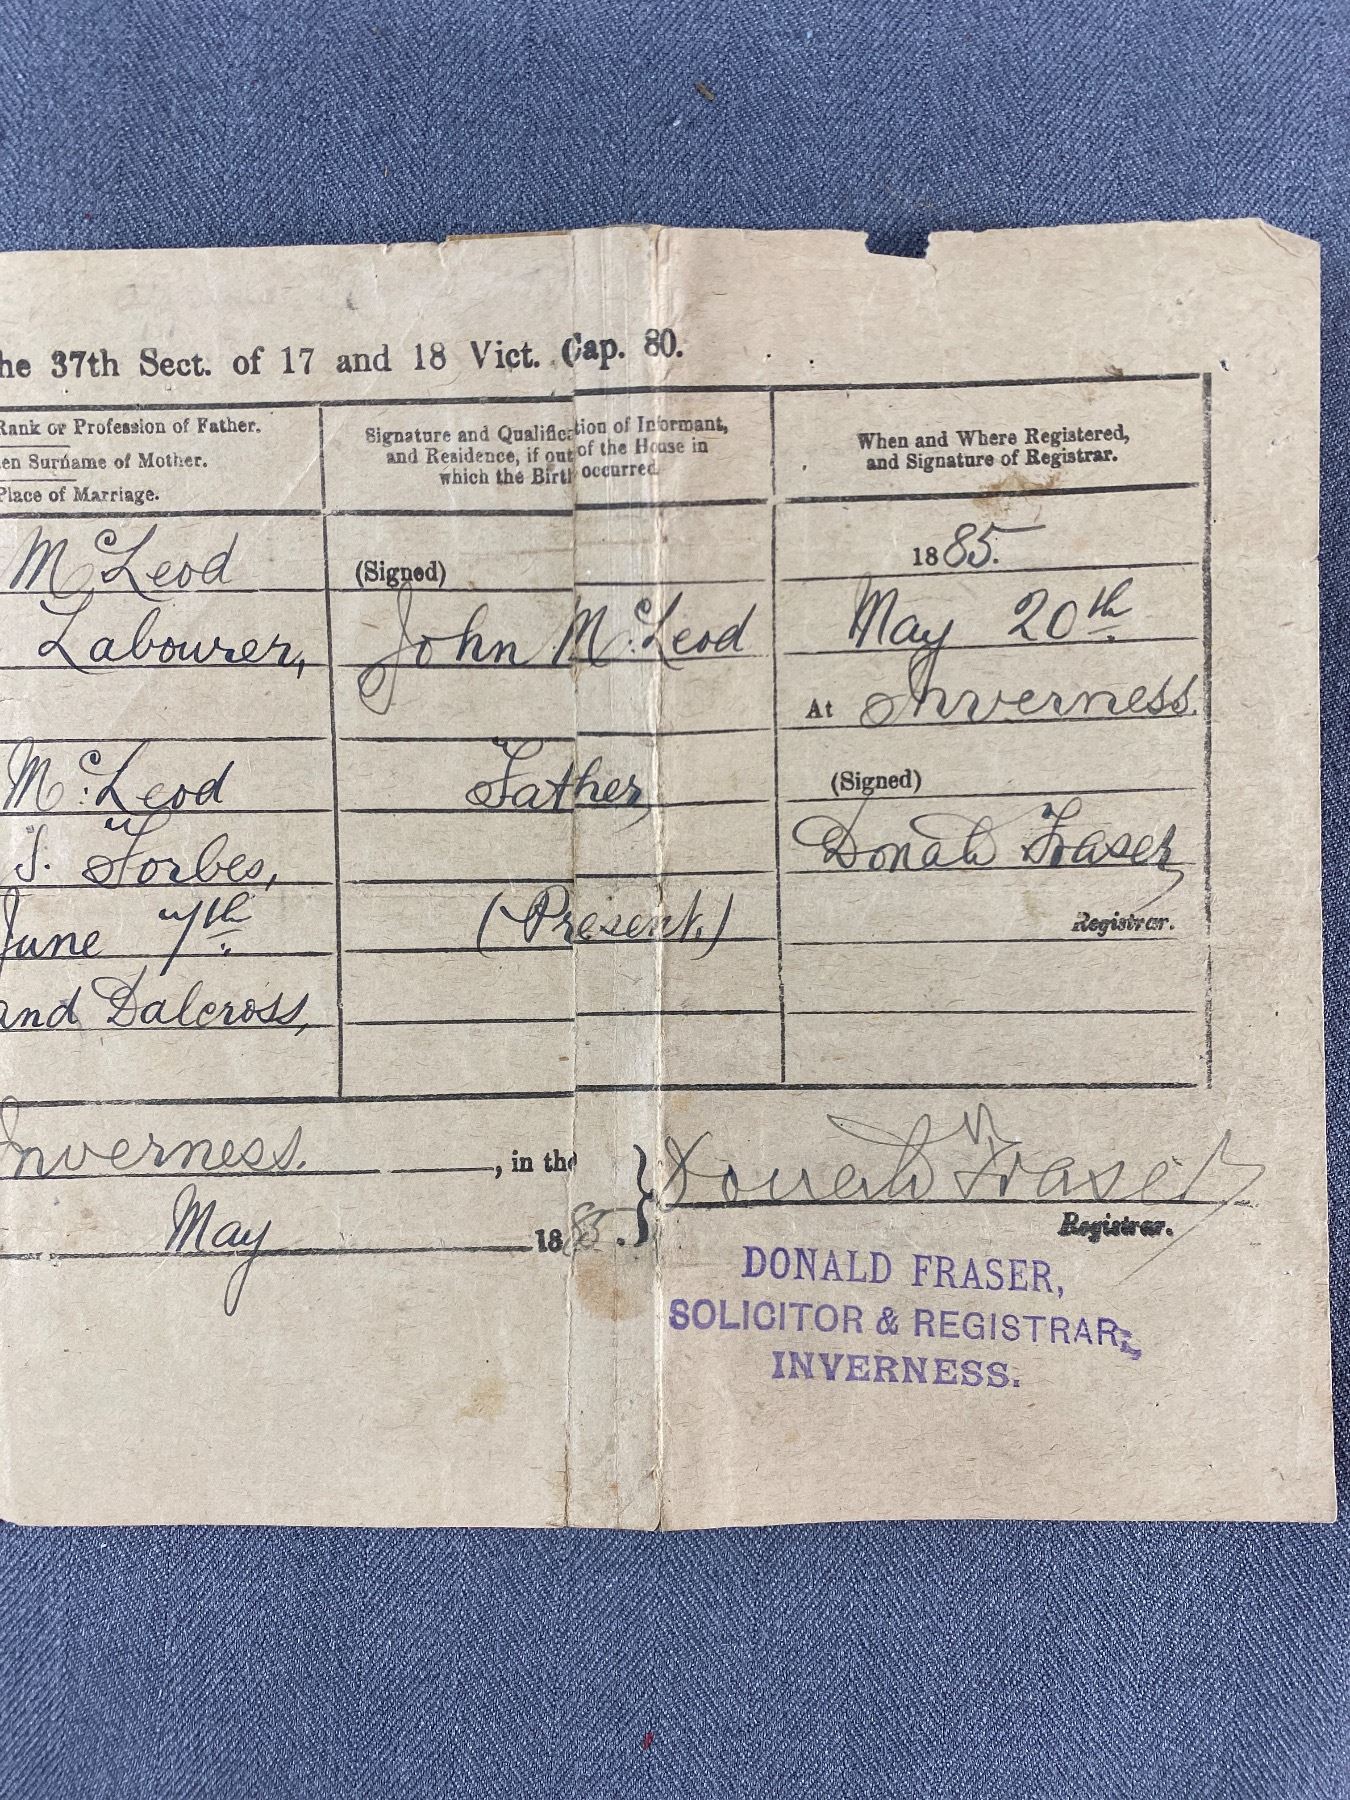 he 37th Sect. of 17 and 18 Vict. Cap. 80.
Rank or Profession of Father.
en Surname of Mother.
Place of Marriage.
Signature and Qualification of Informant,
and Residence, if out of the House in
which the Birth occurred.
When and Where Registered,
and Signature of Registrar.
McLeod
Labourer,
McLeod
S. Forbes,
June 7th
and Dalcross,
(Signed)
John McLeod
Father,
(Present.)
1885.
May 20th
At Inverness.
(Signed)
Donald Fraser
Registrar.
Inverness. , in the
May 1885.
Donald Fraser
Registrar.
DONALD FRASER,
SOLICITOR & REGISTRAR,
INVERNESS.